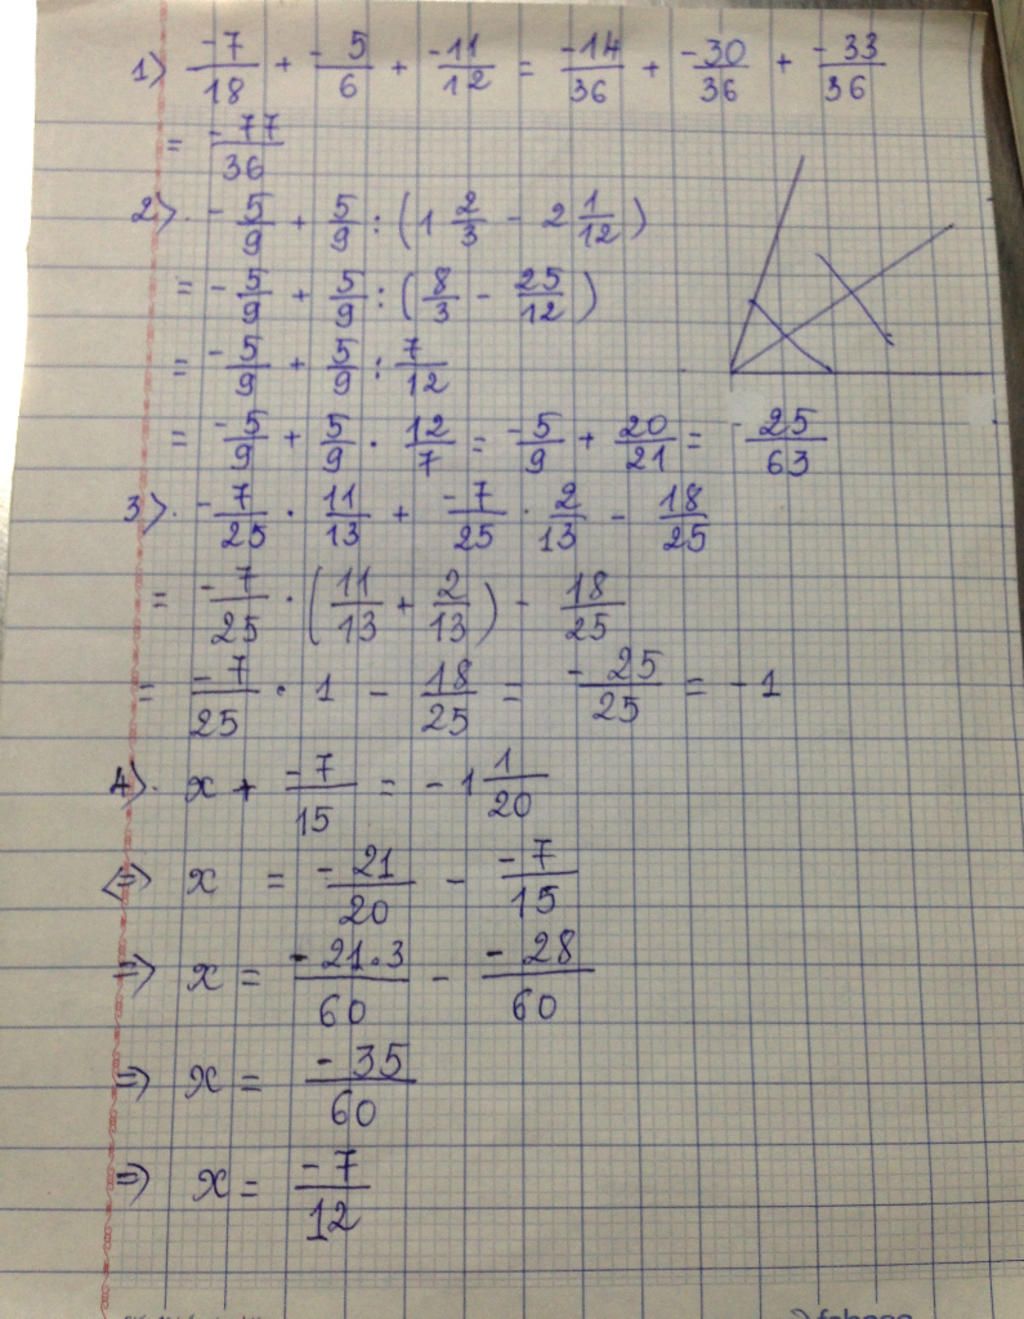 1) -7/18 + -5/6 + -11/12 = -14/36 + -30/36 + -33/36
= -77/36
2). -5/9 + 5/9 : (1 2/3 - 2 1/12)
= -5/9 + 5/9 : (8/3 - 25/12)
= -5/9 + 5/9 : 7/12
= -5/9 + 5/9 . 12/7 = -5/9 + 20/21 = -25/63
3). -7/25 . 11/13 + -7/25 . 2/13 - 18/25
= -7/25 . (11/13 + 2/13) - 18/25
= -7/25 . 1 - 18/25 = -25/25 = -1
4). x + -7/15 = -1 1/20
⇔ x = -21/20 - -7/15
⇒ x = -21.3/60 - -28/60
⇒ x = -35/60
⇒ x = -7/12